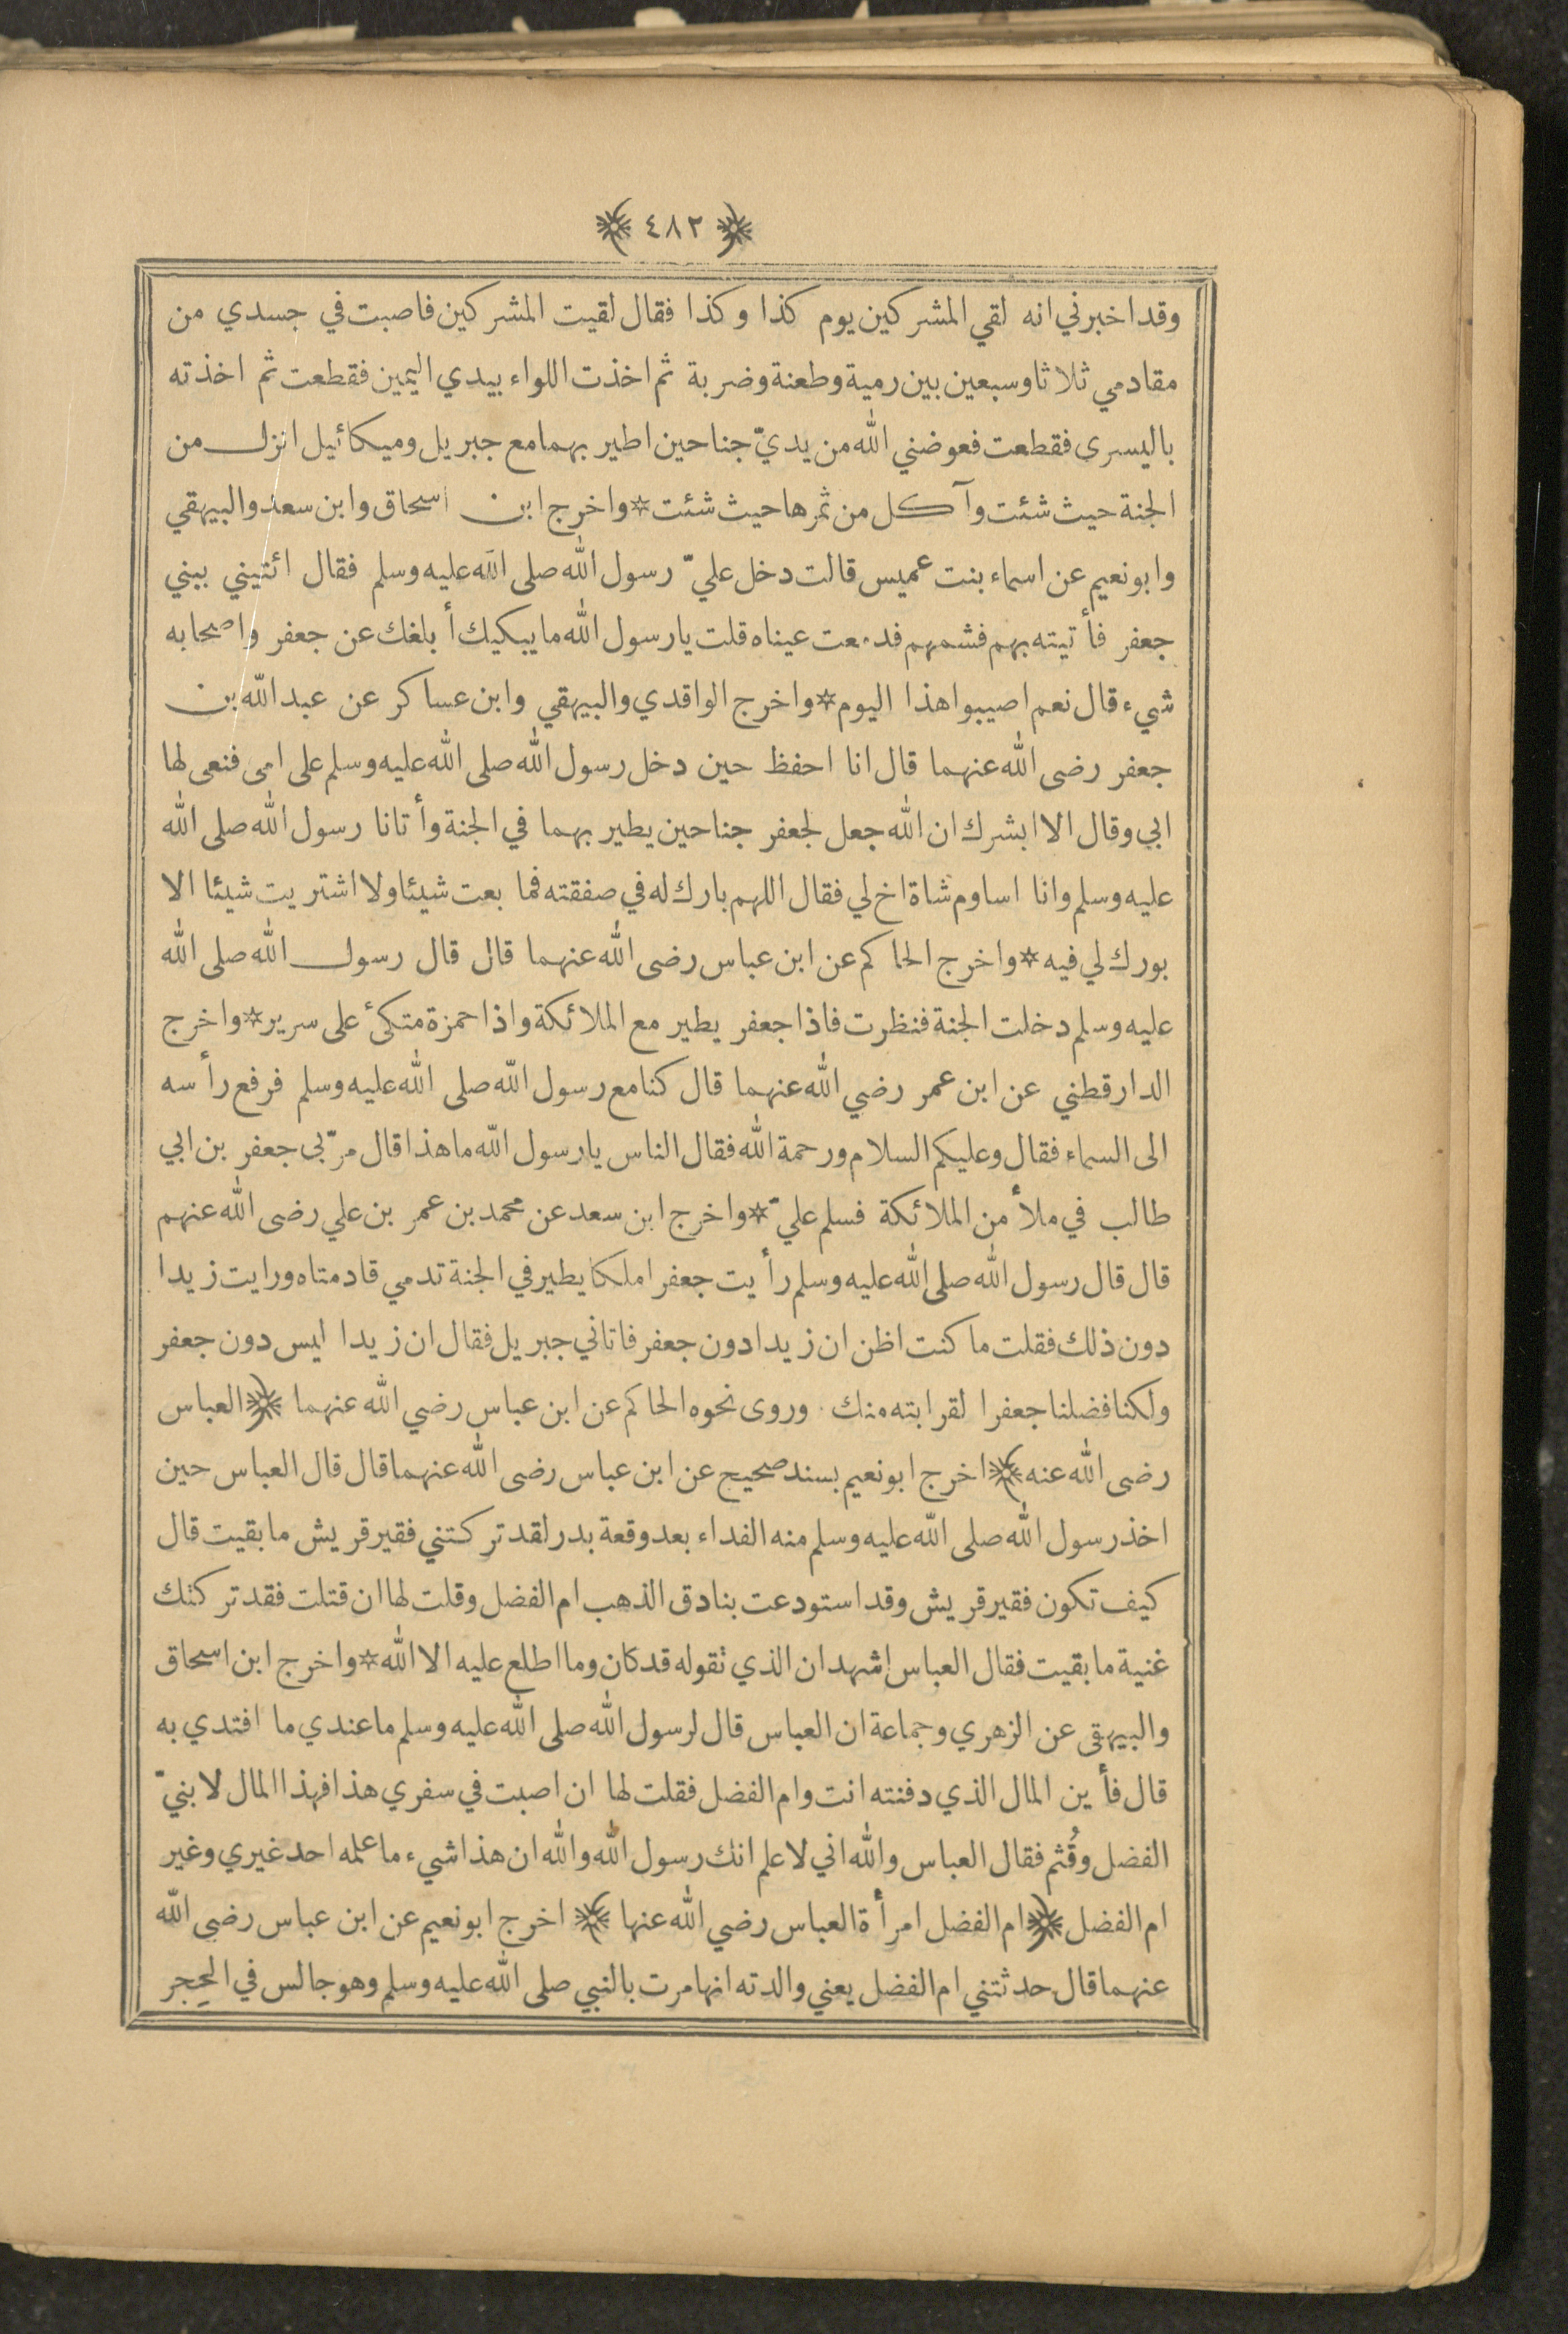 ﴿ ٤٨٢ ﴾
وقد اخبرني انه لقي المشركين يوم كذا وكذا فقال لقيت المشركين فاصبت في جسدي من
مقادمي ثلاثا وسبعين بين رمية وطعنة وضربة ثم اخذت اللواء بيدي اليمين فقطعت ثم اخذته
باليسرى فقطعت فعوضني الله من يديّ جناحين اطير بهما مع جبريل وميكائيل انزل من
الجنة حيث شئت وآكل من ثمرها حيث شئت * واخرج ابن اسحاق وابن سعد والبيهقي
وابو نعيم عن اسماء بنت عميس قالت دخل عليّ رسول الله صلى الله عليه وسلم فقال ائتيني ببني
جعفر فأتيته بهم فشمهم فدمعت عيناه قلت يا رسول الله ما يبكيك أبلغك عن جعفر واصحابه
شيء قال نعم اصيبوا هذا اليوم * واخرج الواقدي والبيهقي وابن عساكر عن عبد الله بن
جعفر رضى الله عنهما قال انا احفظ حين دخل رسول الله صلى الله عليه وسلم على امى فنعى لها
ابي وقال الا ابشرك ان الله جعل لجعفر جناحين يطير بهما في الجنة وأتانا رسول الله صلى الله
عليه وسلم وانا اساوم شاة اخ لي فقال اللهم بارك له في صفقته فما بعت شيئا ولا اشتريت شيئا الا
بورك لي فيه * واخرج الحاكم عن ابن عباس رضى الله عنهما قال قال رسول الله صلى الله
عليه وسلم دخلت الجنة فنظرت فاذا جعفر يطير مع الملائكة واذا حمزة متكئ على سرير * واخرج
الدارقطني عن ابن عمر رضي الله عنهما قال كنا مع رسول الله صلى الله عليه وسلم فرفع رأسه
الى السماء فقال وعليكم السلام ورحمة الله فقال الناس يا رسول الله ما هذا قال مرّ بي جعفر بن ابي
طالب في ملأ من الملائكة فسلم عليّ * واخرج ابن سعد عن محمد بن عمر بن علي رضى الله عنهم
قال قال رسول الله صلى الله عليه وسلم رأيت جعفرا ملكا يطير في الجنة تدمي قادمتاه ورايت زيدا
دون ذلك فقلت ما كنت اظن ان زيدا دون جعفر فاتاني جبريل فقال ان زيدا ليس دون جعفر
ولكنا فضلنا جعفرا لقرابته منك . وروى نحوه الحاكم عن ابن عباس رضي الله عنهما ﴿ العباس
رضى الله عنه ﴾ اخرج ابو نعيم بسند صحيح عن ابن عباس رضى الله عنهما قال قال العباس حين
اخذ رسول الله صلى الله عليه وسلم منه الفداء بعد وقعة بدر لقد تركتني فقير قريش ما بقيت قال
كيف تكون فقير قريش وقد استودعت بنادق الذهب ام الفضل وقلت لها ان قتلت فقد تركتك
غنية ما بقيت فقال العباس اشهد ان الذي نقوله قد كان وما اطلع عليه الا الله * واخرج ابن اسحاق
والبيهقى عن الزهري وجماعة ان العباس قال لرسول الله صلى الله عليه وسلم ما عندي ما افتدي به
قال فأين المال الذي دفنته انت وام الفضل فقلت لها ان اصبت في سفري هذا فهذا المال لابنيّ
الفضل وقُثم فقال العباس والله اني لاعلم انك رسول الله والله ان هذا شيء ما علمه احد غيري وغير
ام الفضل ﴿ ام الفضل امرأة العباس رضي الله عنها ﴾ اخرج ابو نعيم عن ابن عباس رضي الله
عنهما قال حدثتني ام الفضل يعني والدته انها مرت بالنبي صلى الله عليه وسلم وهو جالس في الحِجر